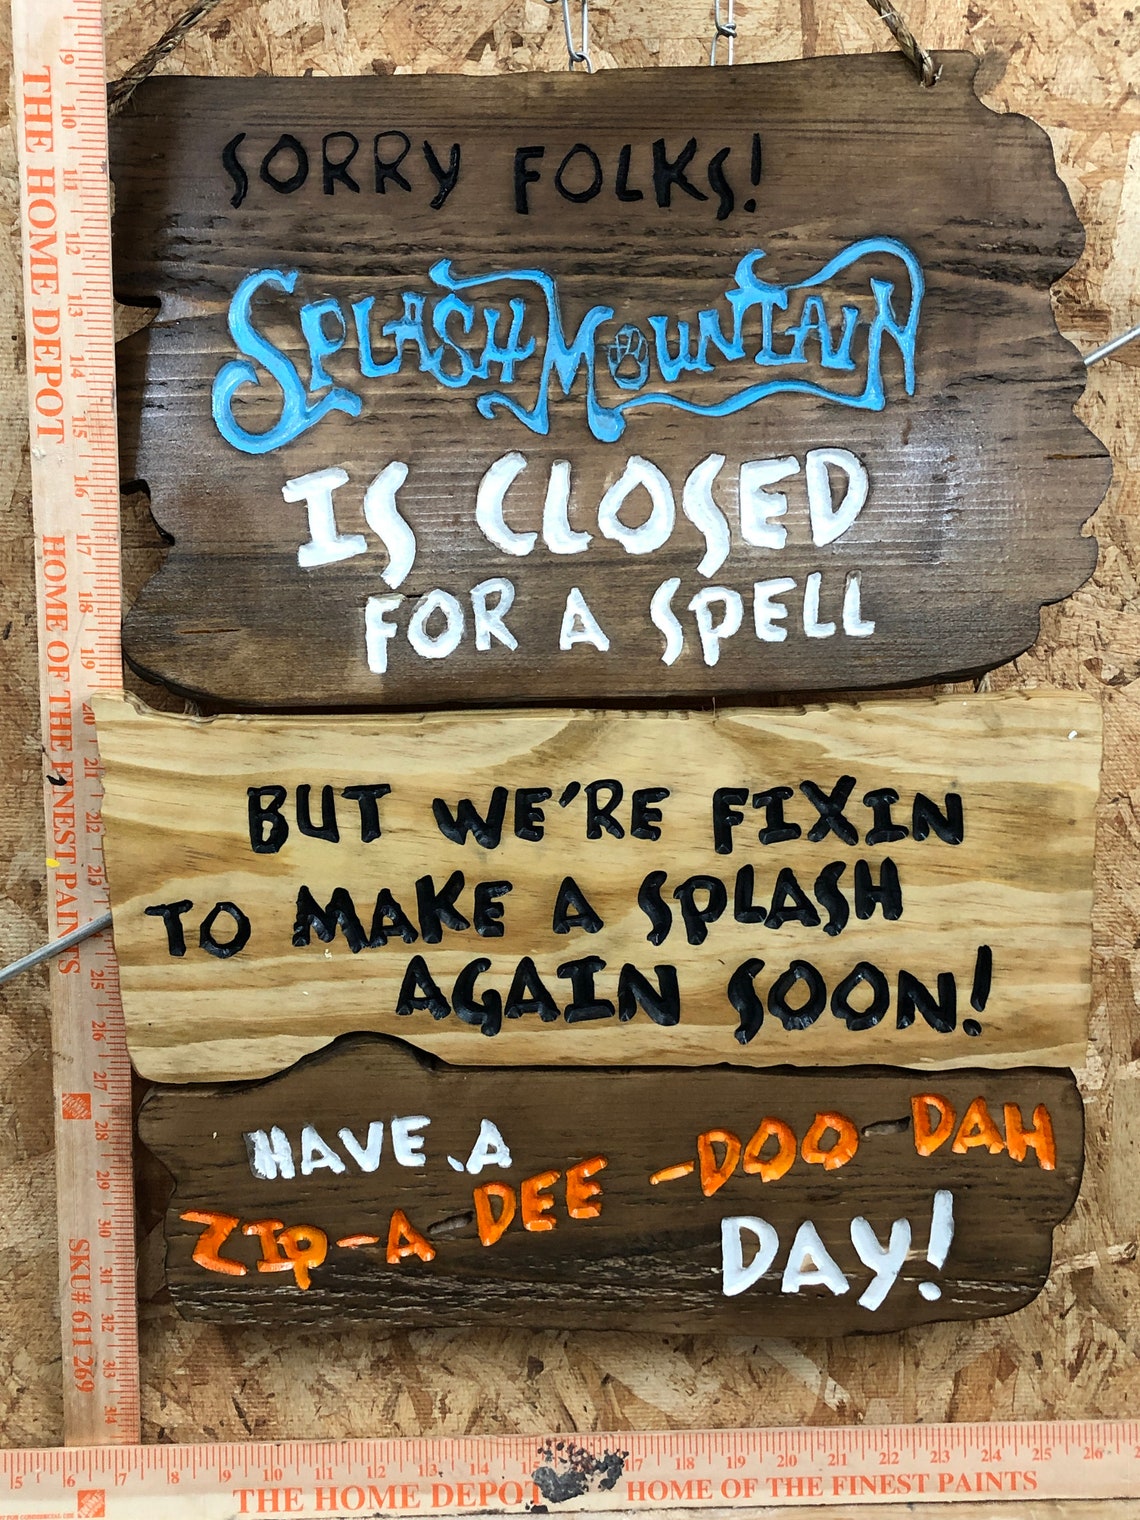 SORRY FOLKS!
SPLASH MOUNTAIN
IS CLOSED
FOR A SPELL
BUT WE'RE FIXIN
TO MAKE A SPLASH
AGAIN SOON!
HAVE A
ZIP-A-DEE-DOO-DAH
DAY!
THE HOME DEPOT
HOME OF THE FINEST PAINTS
SKU# 611 269
9 10 11 12 13 14 15 16 17 18 19 20 21 22 23 25 26 27 28 29 30 31 32 33 34
5 6 7 8 9 10 11 12 13 14 15 17 18 19 20 21 22 23 24 25 26
THE HOME DEPOT HOME OF THE FINEST PAINTS